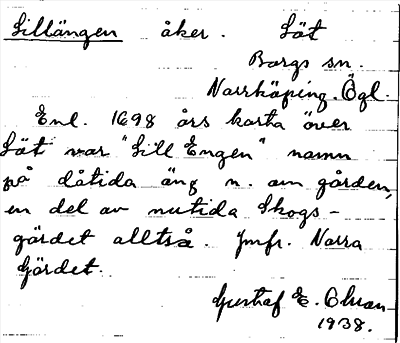 Lillängen åker. Löt
Borgs sn.
Norrköping. Ögl.
Enl. 1698 års karta över
Löt var "Lill Engen" namn
på dåtida äng n. om gården,
en del av nutida Skogs-
gärdet alltså. Jmfr. Norra
Gärdet.
Gustaf E. Olson
1938.